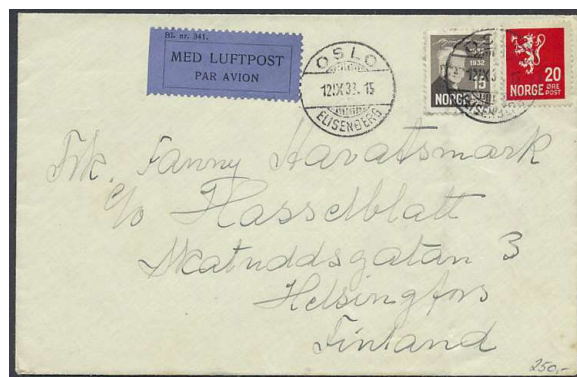 Bl. nr. 341.
MED LUFTPOST
PAR AVION
OSLO
12 IX 33. 15
ELISENBERG
1932
15
NORGE
20
ØRE
POST
NORGE
Frk. Fanny Havatsmark
c/o Hasselblatt
Skatuddsgatan 3
Helsingfors
Finland
250,-